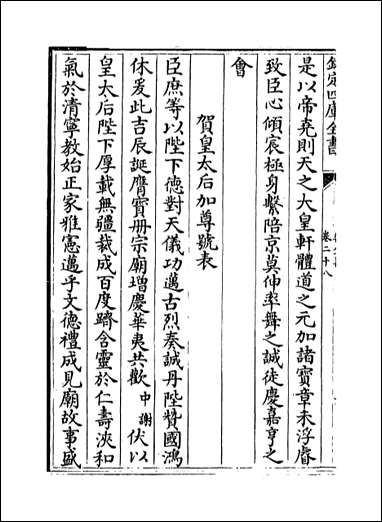 欽定四庫全書
卷二十八
是以帝堯則天之大皇軒體道之元加諸寳章未浮睿
致臣心傾宸極身繫陪京莫伸率舞之誠徒慶嘉亨之
會
賀皇太后加尊號表
臣庶等以陛下德對天儀功邁古烈奏誠丹陛贊國鴻
休爰此吉辰誕膺寳册宗廟増慶華夷共歡中謝伏以
皇太后陛下厚載無疆裁成百度躋含靈於仁壽浹和
氣於清寧教始正家雅憲邁乎文德禮成見廟故事盛